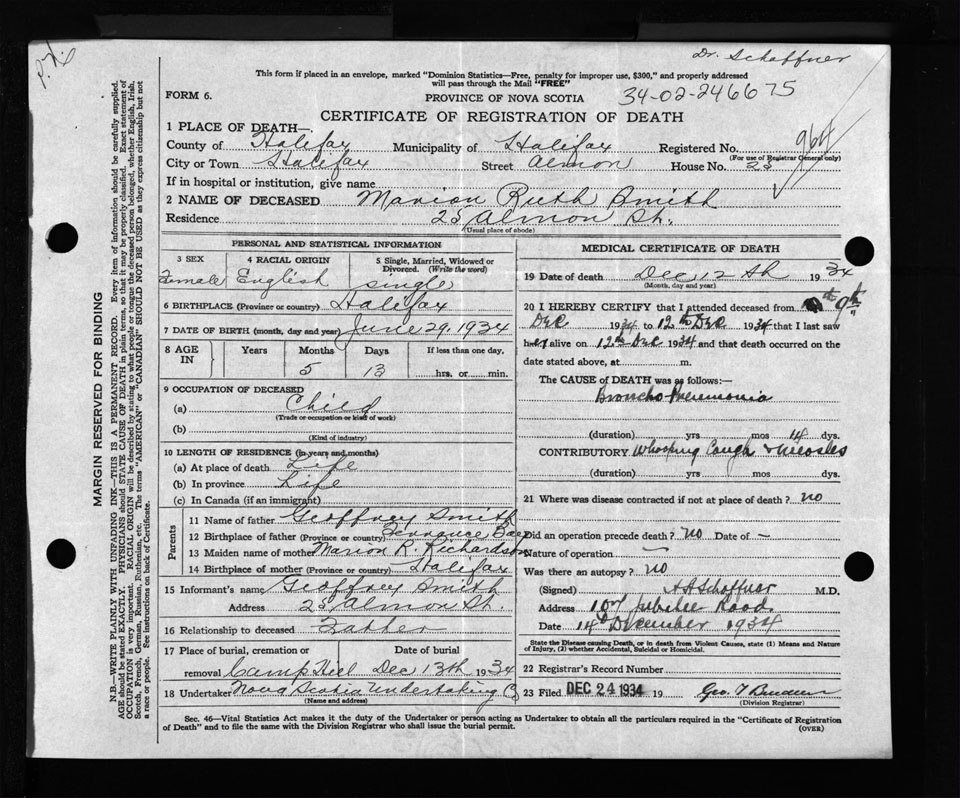 P.N.
Dr. Schaffner
This form if placed in an envelope, marked "Dominion Statistics—Free, penalty for improper use, $300," and properly addressed
will pass through the Mail "FREE"
FORM 6.
PROVINCE OF NOVA SCOTIA
34-02-246675
CERTIFICATE OF REGISTRATION OF DEATH
1 PLACE OF DEATH—
County of Halifax Municipality of Halifax Registered No. 964
(For use of Registrar General only)
City or Town Halifax Street Almon House No. 25
If in hospital or institution, give name
2 NAME OF DECEASED Marion Ruth Smith
Residence 25 Almon St.
(Usual place of abode)
MARGIN RESERVED FOR BINDING
N.B.—WRITE PLAINLY WITH UNFADING INK—THIS IS A PERMANENT RECORD. Every item of information should be carefully supplied.
AGE should be stated EXACTLY. PHYSICIANS should STATE CAUSE OF DEATH in plain terms, so that it may be properly classified. Exact statement of
OCCUPATION is very important. RACIAL ORIGIN will be described by stating to what people or tongue the deceased person belonged, whether English, Irish,
Scotch, French, German, Russian, Ruthenian, etc. The terms "AMERICAN" or "CANADIAN" SHOULD NOT BE USED as they express citizenship but not
a race or people. See instructions on back of Certificate.
PERSONAL AND STATISTICAL INFORMATION
3 SEX 4 RACIAL ORIGIN 5 Single, Married, Widowed or
Divorced. (Write the word)
Female English single
6 BIRTHPLACE (Province or country) Halifax
7 DATE OF BIRTH (month, day and year) June 29, 1934
8 AGE IN Years Months Days If less than one day,
5 13 hrs. or min.
9 OCCUPATION OF DECEASED
(a) Child
(Trade or occupation or kind of work)
(b)
(Kind of industry)
10 LENGTH OF RESIDENCE (In years and months)
(a) At place of death Life
(b) In province Life
(c) In Canada (if an immigrant)
Parents
11 Name of father Geoffrey Smith
12 Birthplace of father (Province or country) Terrance Bay
13 Maiden name of mother Marion R. Richardson
14 Birthplace of mother (Province or country) Halifax
15 Informant's name Geoffrey Smith
Address 25 Almon St.
16 Relationship to deceased Father
17 Place of burial, cremation or Date of burial
removal Camp Hill Dec 13th 1934
18 Undertaker Nova Scotia Undertaking Co
(Name and address)
MEDICAL CERTIFICATE OF DEATH
19 Date of death Dec 12th 1934
(Month, day and year)
20 I HEREBY CERTIFY that I attended deceased from 9th
Dec 1934 to 12th Dec 1934 that I last saw
her alive on 12th Dec 1934 and that death occurred on the
date stated above, at m.
The CAUSE of DEATH was as follows:—
Broncho-Pneumonia
(duration) yrs mos 14 dys.
CONTRIBUTORY Whooping Cough & Measles
(duration) yrs mos dys.
21 Where was disease contracted if not at place of death? no
Did an operation precede death? no Date of —
Nature of operation —
Was there an autopsy? no
(Signed) Schaffner M.D.
Address Jubilee Road
Date 14th December 1934
State the Disease causing Death, or in death from Violent Causes, state (1) Means and Nature
of Injury, (2) whether Accidental, Suicidal or Homicidal.
22 Registrar's Record Number
23 Filed DEC 24 1934 19 Geo.
(Division Registrar)
Sec. 46—Vital Statistics Act makes it the duty of the Undertaker or person acting as Undertaker to obtain all the particulars required in the "Certificate of Registration
of Death" and to file the same with the Division Registrar who shall issue the burial permit.
(OVER)